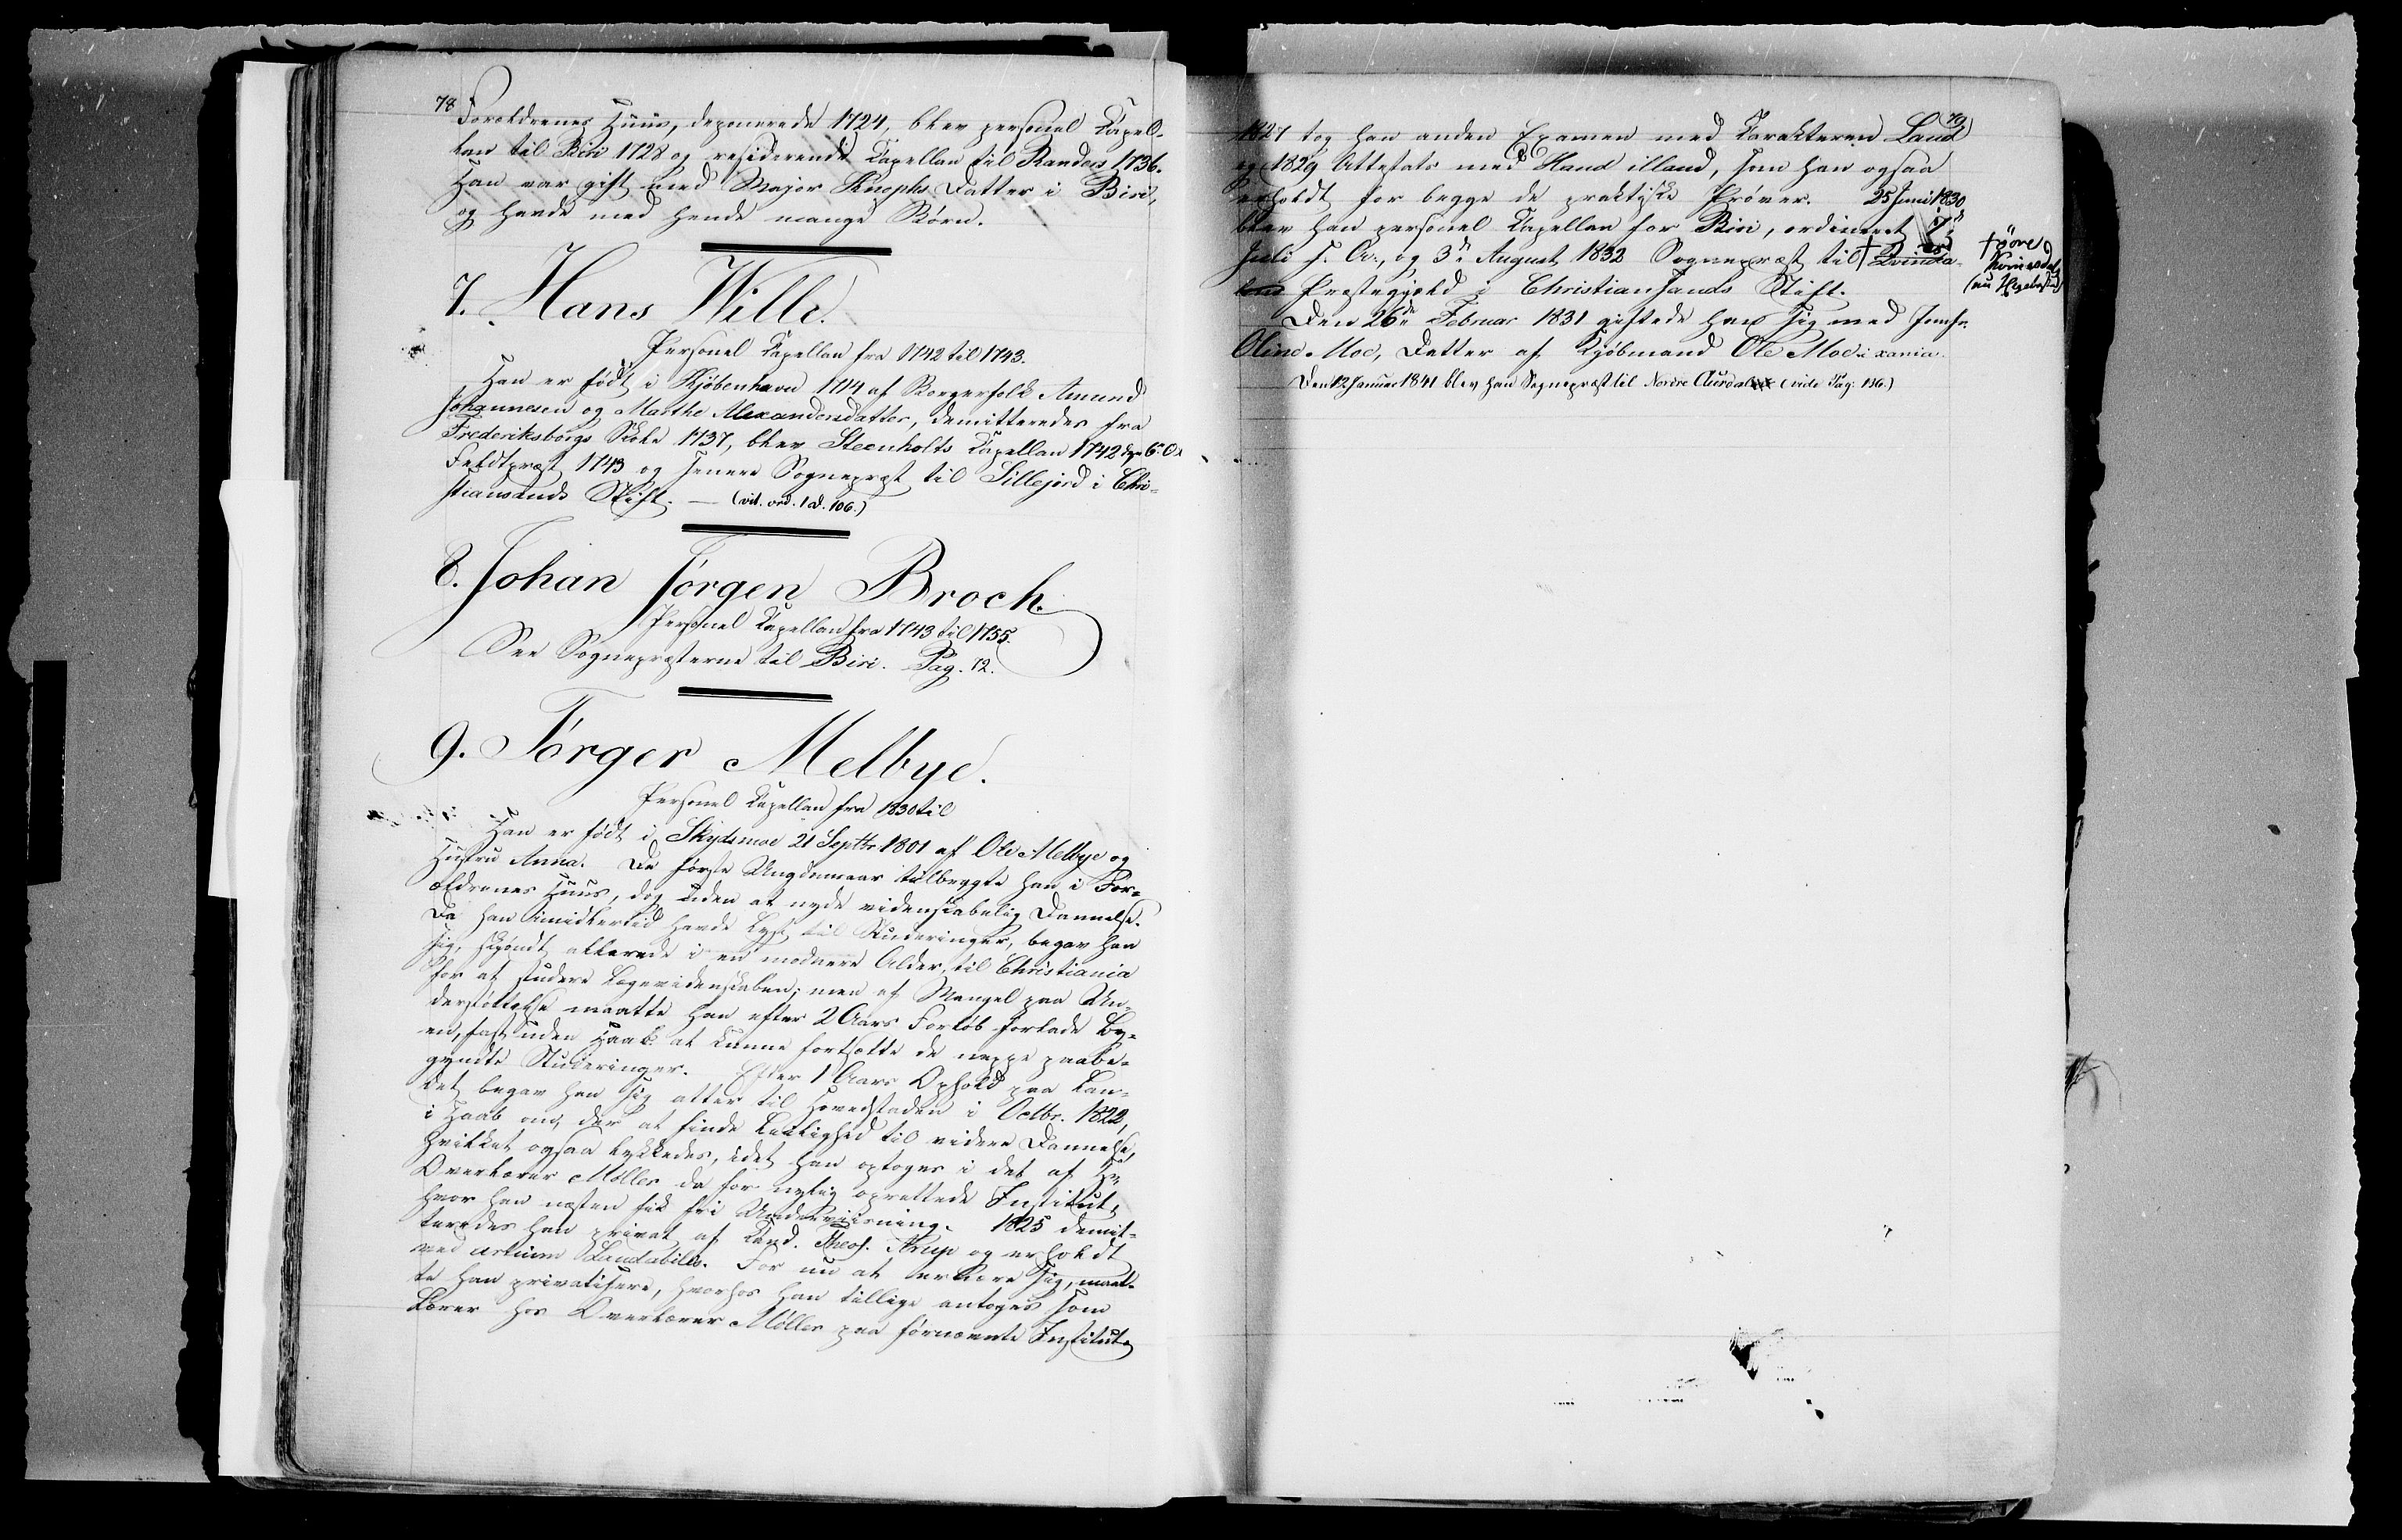 78
Forældrenes Huus, deponerede 1724, blev personel Kapel-
lan til Biri 1728 og residerende Kapellan til Randers 1736.
Han var gift med Major Knophs Datter i Biri,
og havde med hende mange Børn.
7. Hans Wille.
Personel Kapellan fra 1742 til 1743.
Han er født i Kjøbenhavn 1714 af Borgerfolk Amund
Johannesen og Marthe Alexandersdatter, demitteredes fra
Frederiksborgs Skole 1737, blev Steenholts Kapellan 1742
Feldtpræst 1743 og senere Sognepræst til Sillejord i Chri-
stiansands Stift. — (vit. ord. 1 d. 106.)
8. Johan Jørgen Broch.
Personel Kapellan fra 1743 til 1755.
See Sognepræsterne til Biri. Pag. 12.
9. Tørger Melbye.
Personel Kapellan fra 1830 til
Han er født i Skydsmoe 21 Septbr. 1801 af Ole Melbye og
Hustru Anna. De første Ungdomsaar tilbragte han i For-
ældrenes Huus, dog uden at nyde videnskabelig Dannelse.
Da han imidlertid havde Lyst til Studeringer, begav han
sig, skjøndt allerede i en modnere Alder, til Christiania
for at studere Lægevidenskaben; men af Mangel paa Un-
derstøttelse maatte han efter 2 Aars Forløb forlade By-
en, fast uden Haab at kunne fortsætte de neppe paabe-
gyndte Studeringer. Efter 1 Aars Ophold paa Lan-
det begav han sig atter til Hovedstaden i Octbr. 1822,
i Haab om, der at finde Leilighed til videre Dannelse,
hvilket ogsaa lykkedes, idet han optoges i det af Hr.
Overlærer Møller da for nylig oprettede Institut,
hvor han næsten fik fri Underviisning. 1825 demit-
teredes han privat af Cand. Theol. Arup og erholdt
ved artium Laudabilis. For nu at ernære sig, maat-
te han privatisere, hvorhos han tillige antoges som
Lærer hos Overlærer Møller paa førnævnte Institut.
79
1827 tog han anden Examen med Karakteren Laud
og 1829 Attestats med Haud illaud, som han ogsaa
erholdt for begge de praktiske Prøver. 25 Juni 1830
blev han personel Kapellan for Biri, ordineret
Juli s. A., og 3die August 1832 Sognepræst til † Qvinda-
Præstegjeld i Christiansands Stift.
† öovre
Kvinesdal
(nu Hægebostad)
Den 26de Februar 1831 giftede han sig med Jomfr.
Oline Moe, Datter af Kjøbmand Ole Moe i xania.
Den 12 Januar 1841 blev han Sognepræst til Nordre Aurdal (vide Pag. 136.)